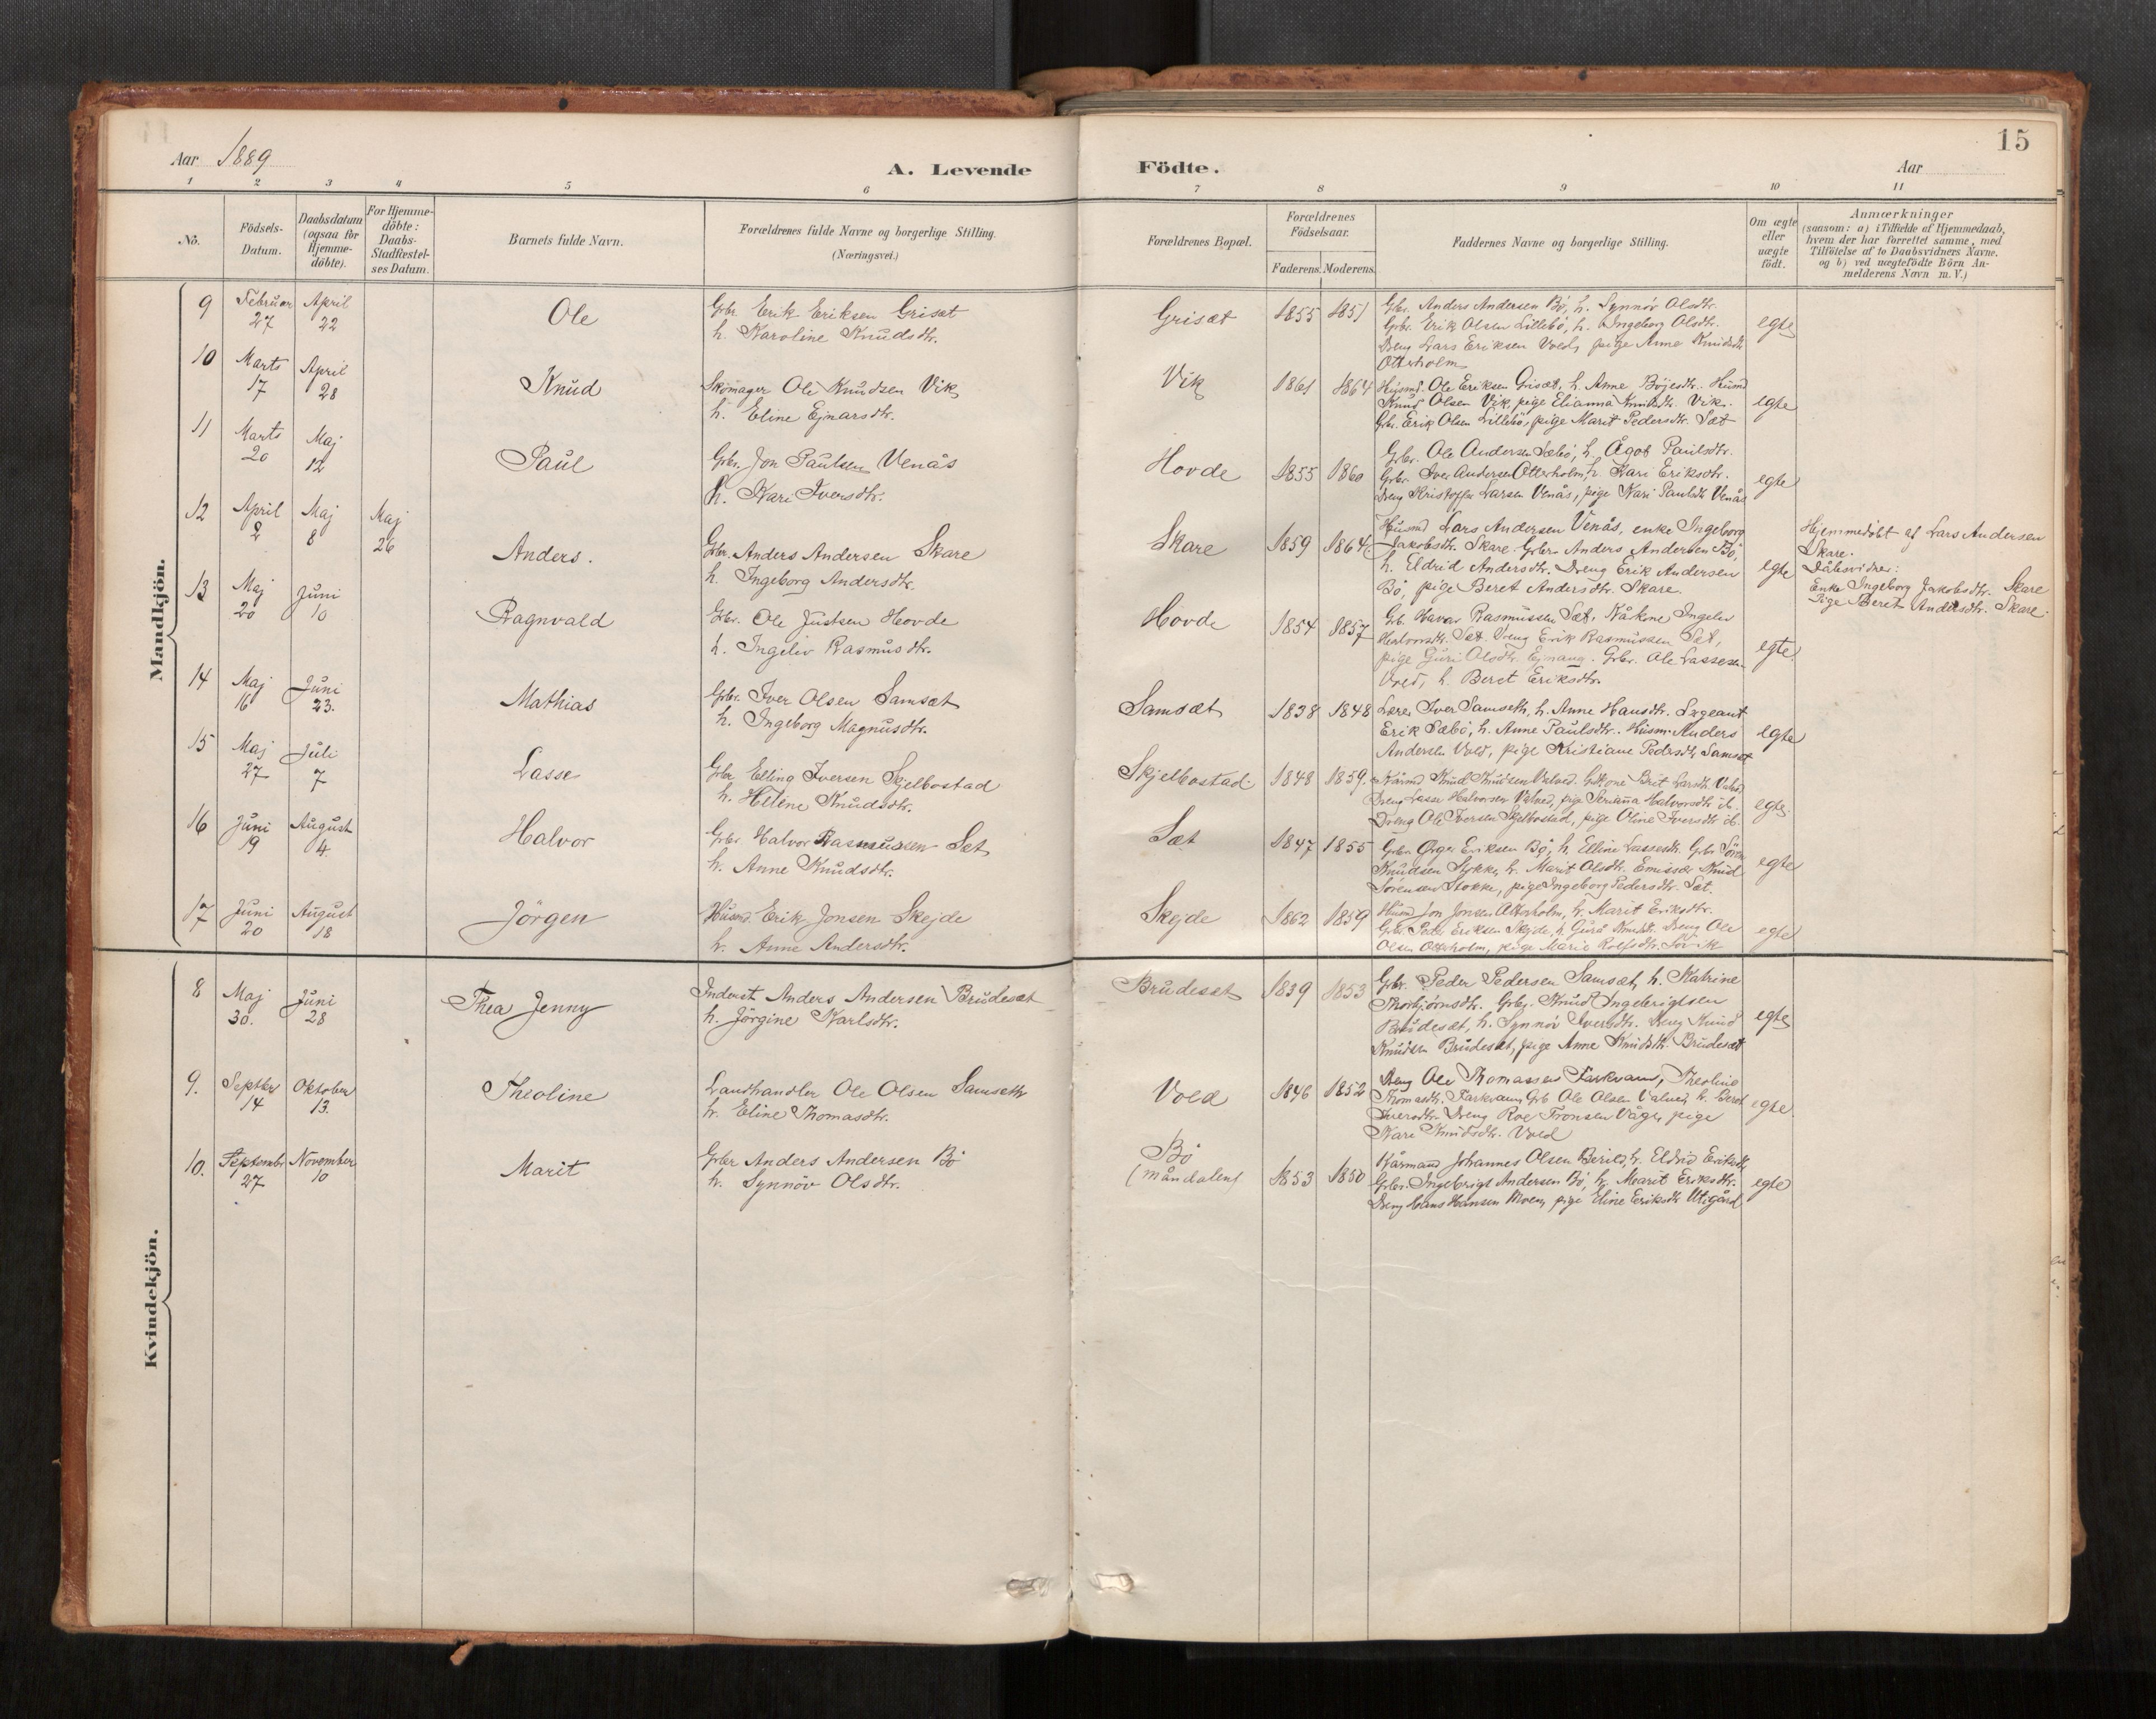 15
Aar 1889
A. Levende Födte.
Aar
1 2 3 4 5 6 7 8 9 10 11
No.
Födsels-
Datum.
Daabsdatum
(ogsaa for
Hjemme-
döbte).
For Hjemme-
döbte:
Daabs-
Stadfæstel-
ses Datum.
Barnets fulde Navn.
Forældrenes fulde Navne og borgerlige Stilling.
(Næringsvei.)
Forældrenes Bopæl.
Forældrenes
Födselsaar.
Faderens. Moderens.
Faddernes Navne og borgerlige Stilling.
Om ægte
eller
uægte
födt.
Anmærkninger
(saasom: a) i Tilfælde af Hjemmedaab,
hvem der har forrettet samme, med
Tilföielse af to Daabsvidners Navne.
og b) ved uægtefödte Börn An-
melderens Navn m. V.)
Mandkjön.
9 Februar 27 April 22 Ole
Gbr. Erik Eriksen Grisæt
h. Karoline Knudsdtr.
Grisæt 1855 1851
Gbr. Anders Andersen Bö, h. Synnöv Olsdtr.
Gbr. Erik Olsen Lillebö, h. Ingeborg Olsdtr.
Dreng Lars Eriksen Vold, pige Anne Knudsdtr.
Otterholm
egte
10 Marts 17 April 28 Knud
Skomager Ole Knudsen Vik
h. Eline Ejnarsdtr.
Vik 1861 1864
Husmd. Ole Eriksen Grisæt, h. Anne Böjesdtr. Husmd
Knud Olsen Vik, pige Elianna Knudsdtr. Vik.
Gbr. Erik Olsen Lillebö, pige Marit Pedersdtr. Sæt
egte
11 Marts 20 Maj 12 Paul
Gbr. Jon Paulsen Venås
h. Kari Iversdtr.
Hovde 1855 1860
Gbr. Ole Andersen Sæbö, h. Ågot Paulsdtr.
Gbr. Iver Andersen Otterholm, h. Kari Eriksdtr.
Dreng Kristoffer Larsen Venås, pige Kari Paulsdtr. Venås
egte
12 April 2 Maj 8 Maj 26 Anders.
Gbr. Anders Andersen Skare
h. Ingeborg Andersdtr.
Skare 1859 1864
Husmd Lars Andersen Venås, enke Ingeborg
Jakobsdtr. Skare. Gbr. Anders Andersen Bö,
h. Eldrid Andersdtr. Dreng Erik Andersen
Bö, pige Beret Andersdtr. Skare.
egte
Hjemmedöbt af Lars Andersen
Skare.
Dåbsvidner:
Enke Ingeborg Jakobsdtr. Skare
Pige Beret Andersdtr. Skare.
13 Maj 20 Juni 10 Ragnvald
Gbr. Ole Justsen Hovde
h. Ingeliv Rasmusdtr.
Hovde 1854 1857
Gb. Havar Rasmussen Sæt, Kårkone Ingelev
Halvorsdtr. Sæt. Dreng Erik Rasmussen Sæt,
pige Guri Olsdtr. Gbr. Ole Lassesen
Vold, h. Beret Eriksdtr.
egte
14 Maj 16 Juni 23. Mathias
Gbr. Iver Olsen Samsæt
h. Ingeborg Magnusdtr.
Samsæt 1838 1848
Lærer Iver Samseth, h. Anne Hansdtr. Sergeant
Erik Sæbö, h. Anne Paulsdtr. Husm. Anders
Andersen Vold, pige Kristiane Pedersdtr. Samsæt
egte
15 Maj 27 Juli 7 Lasse
Gbr Elling Iversen Skjelbostad
h. Heline Knudsdtr.
Skjelbostad 1848 1859.
Kårmd Knud Knudsen Valved. Gbkone Brit Larsdtr. Valved
Dreng Lasse Halvorsen Valved, pige Serianna Halvorsdtr. ib.
Dreng Ole Iversen Skjelbostad, pige Oline Iversdtr ib.
egte
16 Juni 19 August 4. Halvor
Gbr. Halvor Rasmussen Sæt
h. Anne Knudsdtr.
Sæt 1847 1855
Gbr. Eriksen Bö, h. Elline Lassesdtr. Gbr Sören
Knudsen Stokke, h. Marit Olsdtr. Emissær Knud
Sörensen Stokke, pige Ingeborg Pedersdtr. Sæt.
egte
17 Juni 20 August 18 Jörgen
Husmd. Erik Jonsen Skejde
h. Anne Andersdtr.
Skejde 1862 1859
Husmd Jon Jonsen Otterholm, h. Marit Eriksdtr.
Gbr. Peder Eriksen Skejde, h. Guro Knudsdtr. Dreng Ole
Olsen Otterholm, pige Marie Rolfsdtr. Sövik
egte
Kvindekjön.
8 Maj 30. Juni 28 Thea Jenny
Inderst Anders Andersen Brudesæt
h. Jörgine Karlsdtr.
Brudesæt 1839 1853
Gbr. Peder Pedersen Samsæt, h. Katrine
Thorbjörnsdtr. Gbr. Knud Ingebrigtsen
Brudesæt, h. Synnöv Iversdtr. Dreng Knud
Knudsen Brudesæt, pige Anne Knudsdtr. Brudesæt
egte
9. Septber 14 Oktober 13. Theoline
Landhandler Ole Olsen Samseth
h. Eline Thomasdtr.
Vold 1846 1852
Dreng Ole Thomassen Farkvam, Theoline
Thomasdtr. Farkvam, Gb Ole Olsen Valved, h. Beret
Iversdtr. Dreng Roe Tronsen Våge, pige
Kari Knudsdtr. Vold
egte.
10. September 27 November 10 Marit
Gbr Anders Andersen Bö
h. Synnöv Olsdtr.
Bö
(Måndalen) 1853 1850
Kårmand Johannes Olsen Berild, h. Eldrid Eriksdtr,
Gbr. Ingebrigt Andersen Bö, h. Marit Eriksdtr.
Dreng Hans Hansen Moen, pige Eline Eriksdtr Utigård
egte